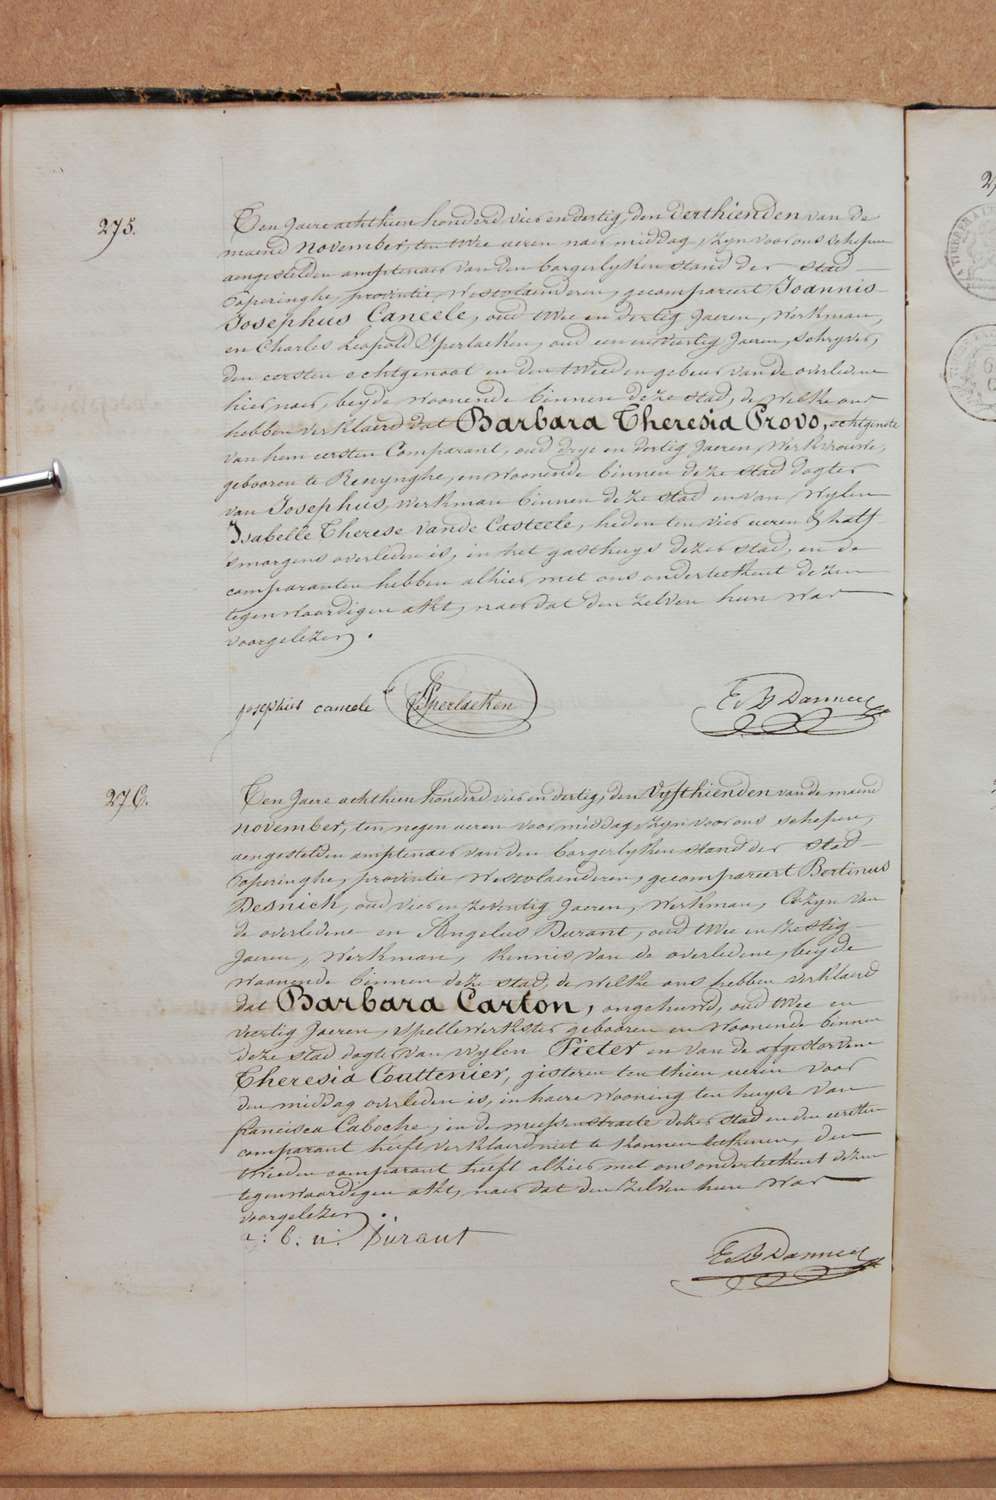 275.
Ten Jaere achthien honderd vier en dertig, den derthienden van de
maend november, ten twee ueren naer middag, zyn voor ons schepen
aengestelden amptenaer van den borgerlyken stand der stad
Poperinghe, provintie, Westvlaenderen, gecompareert Joannis
Josephus Cancele, oud twee en dertig Jaeren, Werkman,
en Charles Leopold Sperlaeken, oud een en veertig Jaeren, schryver,
den eersten echtgenoot en den tweeden gebuer van de overledene
hiernaer, beyde woonende binnen deze stad, de welke ons
hebben verklaerd dat Barbara Theresia Provo, echtgenote
van hem eersten Comparant, oud drye en dertig Jaeren, Werkvrouwe,
gebooren te Renynghe, en woonende binnen deze stad dogter
van Josephus, werkman binnen deze stad en van Wylen
Isabelle Therese Vande Casteele, heden ten vier ueren & half
'smorgens overleden is, in het gasthuys dezer stad, en de
comparanten hebben alhier met ons onderteekent dezen
tegenwoordigen akt, naer dat den zelven hun was
voorgelezen.
josephus cancele Sperlaeken
276.
Ten Jaere achthien honderd vier en dertig, den Vyfthienden van de maend
november, ten negen ueren voor middag, zyn voor ons schepen,
aengestelden amptenaer van den borgerlyken stand der stad
Poperinghe, provintie, Westvlaenderen, gecompareert Bertinus
Desnick, oud vier en zeventig Jaeren, Werkman, Cozyn van
de overledene en Angelus Durant, oud twee en zestig
Jaeren, Werkman, Kennis van de overledene, beyde
woonende binnen deze stad, de welke ons hebben verklaerd
dat Barbara Carton, ongehuwd, oud twee en
veertig Jaeren, spellewerkster gebooren en woonende binnen
deze stad dogter van wylen Pieter en van de afgestorvene
Theresia Couttenier, gisteren ten thien ueren voor
den middag overleden is, in haere wooning ten huyse van
francisca Caboche, in de straete dezer stad en den eersten
comparant heeft verklaerd niet te konnen teekenen, den
tweeden comparant heeft alhier met ons onderteekent dezen
tegenwoordigen akt, naer dat den zelven hun was
voorgelezen.
Durant